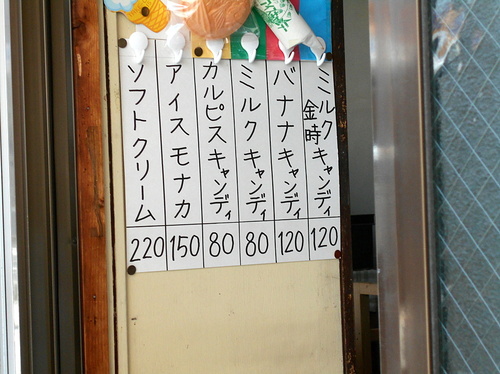 ミルク金時キャンディ 120
バナナキャンディ 120
ミルクキャンディ 80
カルピスキャンディ 80
アイスモナカ 150
ソフトクリーム 220